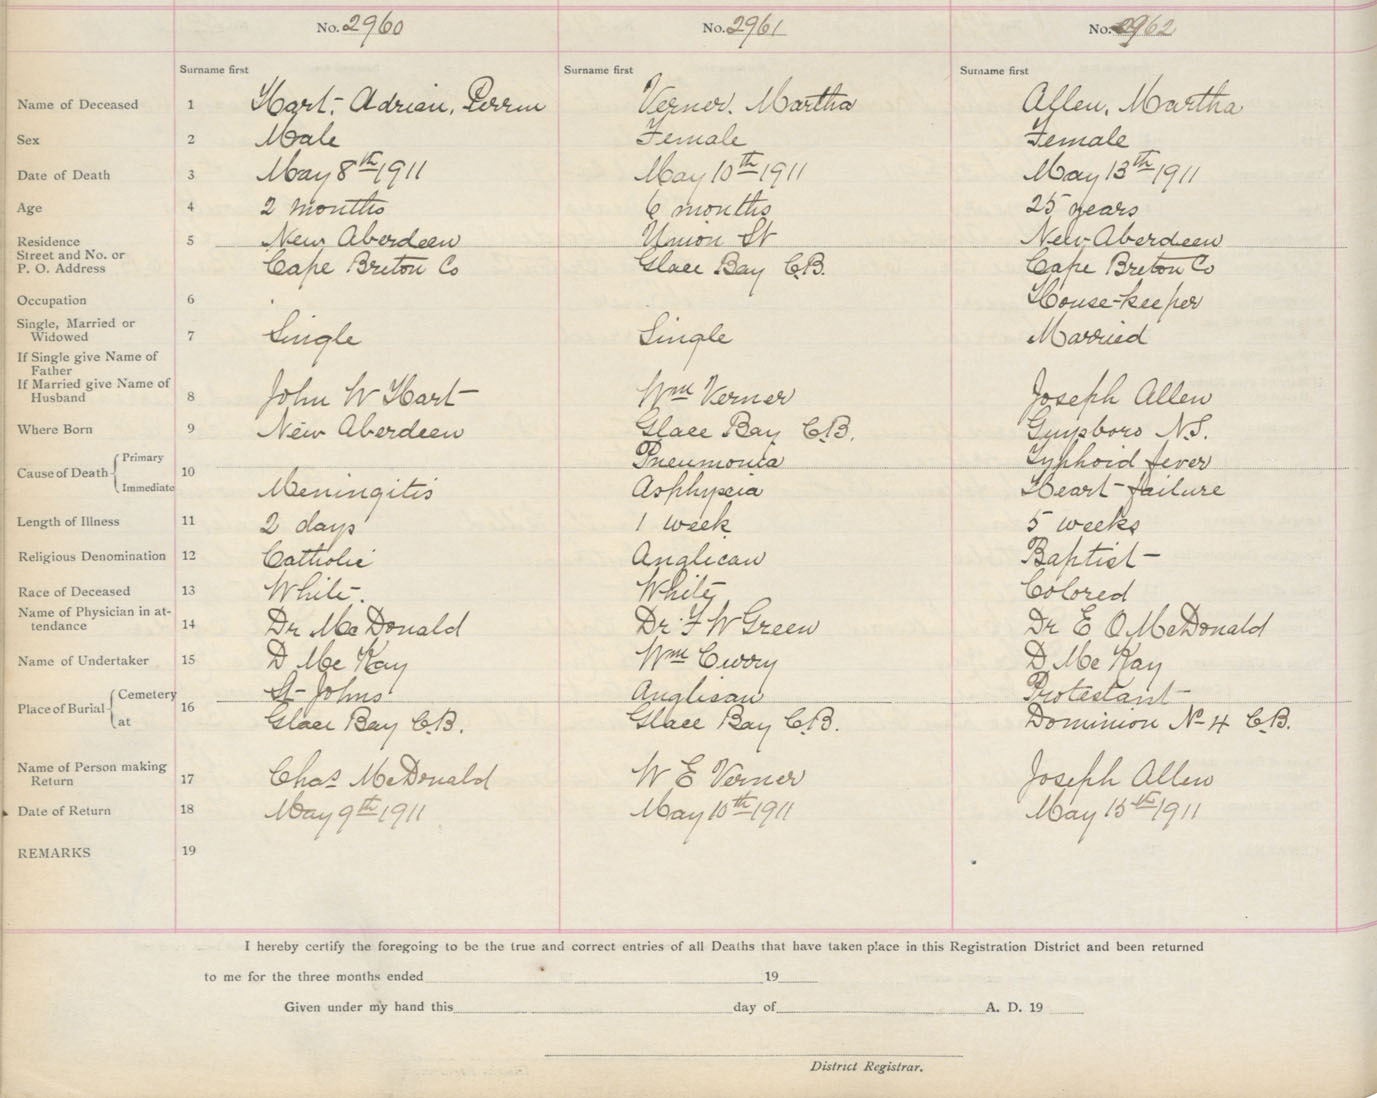 No. 2960 No. 2961 No. 2962
Surname first Surname first Surname first
Name of Deceased 1 Hart, Adrian, Perrin Verner, Martha Allen, Martha
Sex 2 Male Female Female
Date of Death 3 May 8th 1911 May 10th 1911 May 13th 1911
Age 4 2 months 6 months 25 years
Residence 5 New Aberdeen Union St New Aberdeen
Street and No. or
P. O. Address Cape Breton Co Glace Bay C.B. Cape Breton Co
Occupation 6 House-keeper
Single, Married or
Widowed 7 Single Single Married
If Single give Name of
Father
If Married give Name of
Husband 8 John W Hart Wm Verner Joseph Allen
Where Born 9 New Aberdeen Glace Bay C.B. Guysboro N.S.
Primary Pneumonia Typhoid fever
Cause of Death 10
Immediate Meningitis Asphyxia Heart failure
Length of Illness 11 2 days 1 week 5 weeks
Religious Denomination 12 Catholic Anglican Baptist
Race of Deceased 13 White White Colored
Name of Physician in at-
tendance 14 Dr McDonald Dr F W Green Dr E O McDonald
Name of Undertaker 15 D McKay Wm D McKay
Cemetery St Johns Anglican Protestant
Place of Burial 16
at Glace Bay C.B. Glace Bay C.B. Dominion No 4 C.B.
Name of Person making
Return 17 Chas McDonald W E Verner Joseph Allen
Date of Return 18 May 9th 1911 May 10th 1911 May 15th 1911
REMARKS 19
I hereby certify the foregoing to be the true and correct entries of all Deaths that have taken place in this Registration District and been returned
to me for the three months ended 19
Given under my hand this day of A. D. 19
District Registrar.